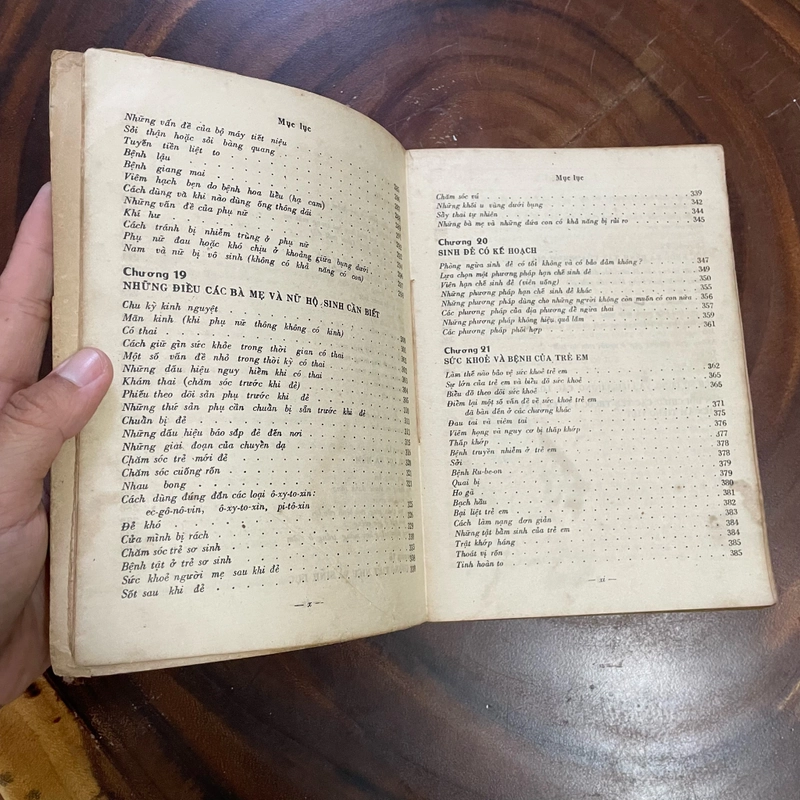 Mục lục
Những vấn đề của bộ máy tiết niệu
Sỏi thận hoặc sỏi bàng quang
Tuyến tiền liệt to
Bệnh lậu
Bệnh giang mai
Viêm hạch bẹn do bệnh hoa liễu (hạ cam)
Cách dùng và khi nào dùng ống thông dái
Những vấn đề của phụ nữ
Khí hư
Cách tránh bị nhiễm trùng ở phụ nữ
Phụ nữ đau hoặc khó chịu ở khoảng giữa bụng dưới
Nam và nữ bị vô sinh (không có khả năng có con)
Chương 19
NHỮNG ĐIỀU CÁC BÀ MẸ VÀ NỮ HỘ SINH CẦN BIẾT
Chu kỳ kinh nguyệt
Mãn kinh (khi phụ nữ thông không có kinh)
Có thai
Cách giữ gìn sức khỏe trong thời gian có thai
Một số vấn đề nhỏ trong thời kỳ có thai
Những dấu hiệu nguy hiểm khi có thai
Khám thai (chăm sóc trước khi đẻ)
Phiếu theo dõi sản phụ trước khi đẻ
Những thứ sản phụ cần chuẩn bị sẵn trước khi đẻ
Chuẩn bị đẻ
Những dấu hiệu báo sắp đẻ đến nơi
Những giai đoạn của chuyển dạ
Chăm sóc trẻ mới đẻ
Chăm sóc cuống rốn
Nhau bong
Cách dùng đúng đắn các loại ô-xy-to-xin:
ec-gô-nô-vin, ô-xy-to-xin, pi-tô-xin
Đẻ khó
Cửa mình bị rách
Chăm sóc trẻ sơ sinh
Bệnh tật ở trẻ sơ sinh
Sức khoẻ người mẹ sau khi đẻ
Sốt sau khi đẻ
— x —
Mục lục
Chăm sóc vú 339
Những khối u vùng dưới bụng 342
Sẩy thai tự nhiên 344
Những bà mẹ và những đứa con có khả năng bị rủi ro 345
Chương 20
SINH ĐẺ CÓ KẾ HOẠCH
Phòng ngừa sinh đẻ có tốt không và có bảo đảm không? 347
Lựa chọn một phương pháp hạn chế sinh đẻ 349
Viên hạn chế sinh đẻ (viên uống) 350
Những phương pháp hạn chế sinh đẻ khác 355
Những phương pháp dùng cho những người không còn muốn có con nữa 356
Các phương pháp của địa phương để ngừa thai 357
Những phương pháp không hiệu quả lắm 359
Các phương pháp phối hợp 361
Chương 21
SỨC KHOẺ VÀ BỆNH CỦA TRẺ EM
Làm thế nào bảo vệ sức khoẻ trẻ em 362
Sự lớn của trẻ em và biểu đồ sức khoẻ 365
Biểu đồ theo dõi sức khoẻ 365
Điểm lại một số vấn đề về sức khoẻ trẻ em
đã bàn đến ở các chương khác 371
Đau tai và viêm tai 375
Viêm họng và nguy cơ bị thấp khớp 376
Thấp khớp 377
Bệnh truyền nhiễm ở trẻ em 378
Sởi 378
Bệnh Ru-be-on 379
Quai bị 379
Ho gà 380
Bạch hầu 381
Bại liệt trẻ em 382
Cách làm nạng đơn giản 383
Những tật bẩm sinh của trẻ em 384
Trật khớp háng 384
Thoát vị rốn 385
Tinh hoàn to 385
— xi —